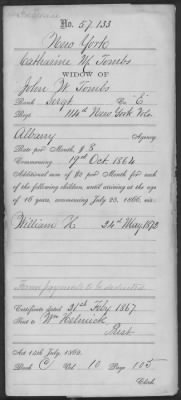 No. 57,133
New York
Catharine M Tombs
WIDOW OF
John W Tombs
Rank Sergt Co. "E"
Regt 114th New York Vols.
Albany Agency
Rate per Month, $ 8
Commencing 19th Oct 1864
Additional sum of $2 per Month for each
of the following children, until arriving at the age
of 16 years, commencing July 25, 1866, viz:
William H 24th May 1872
Former payments to be deducted.
Certificate dated 21st Feby 1867
Sent to Wm Helmick
Prest
Act 14th July, 1862.
Book C Vol 10 Page 105
Clerk.